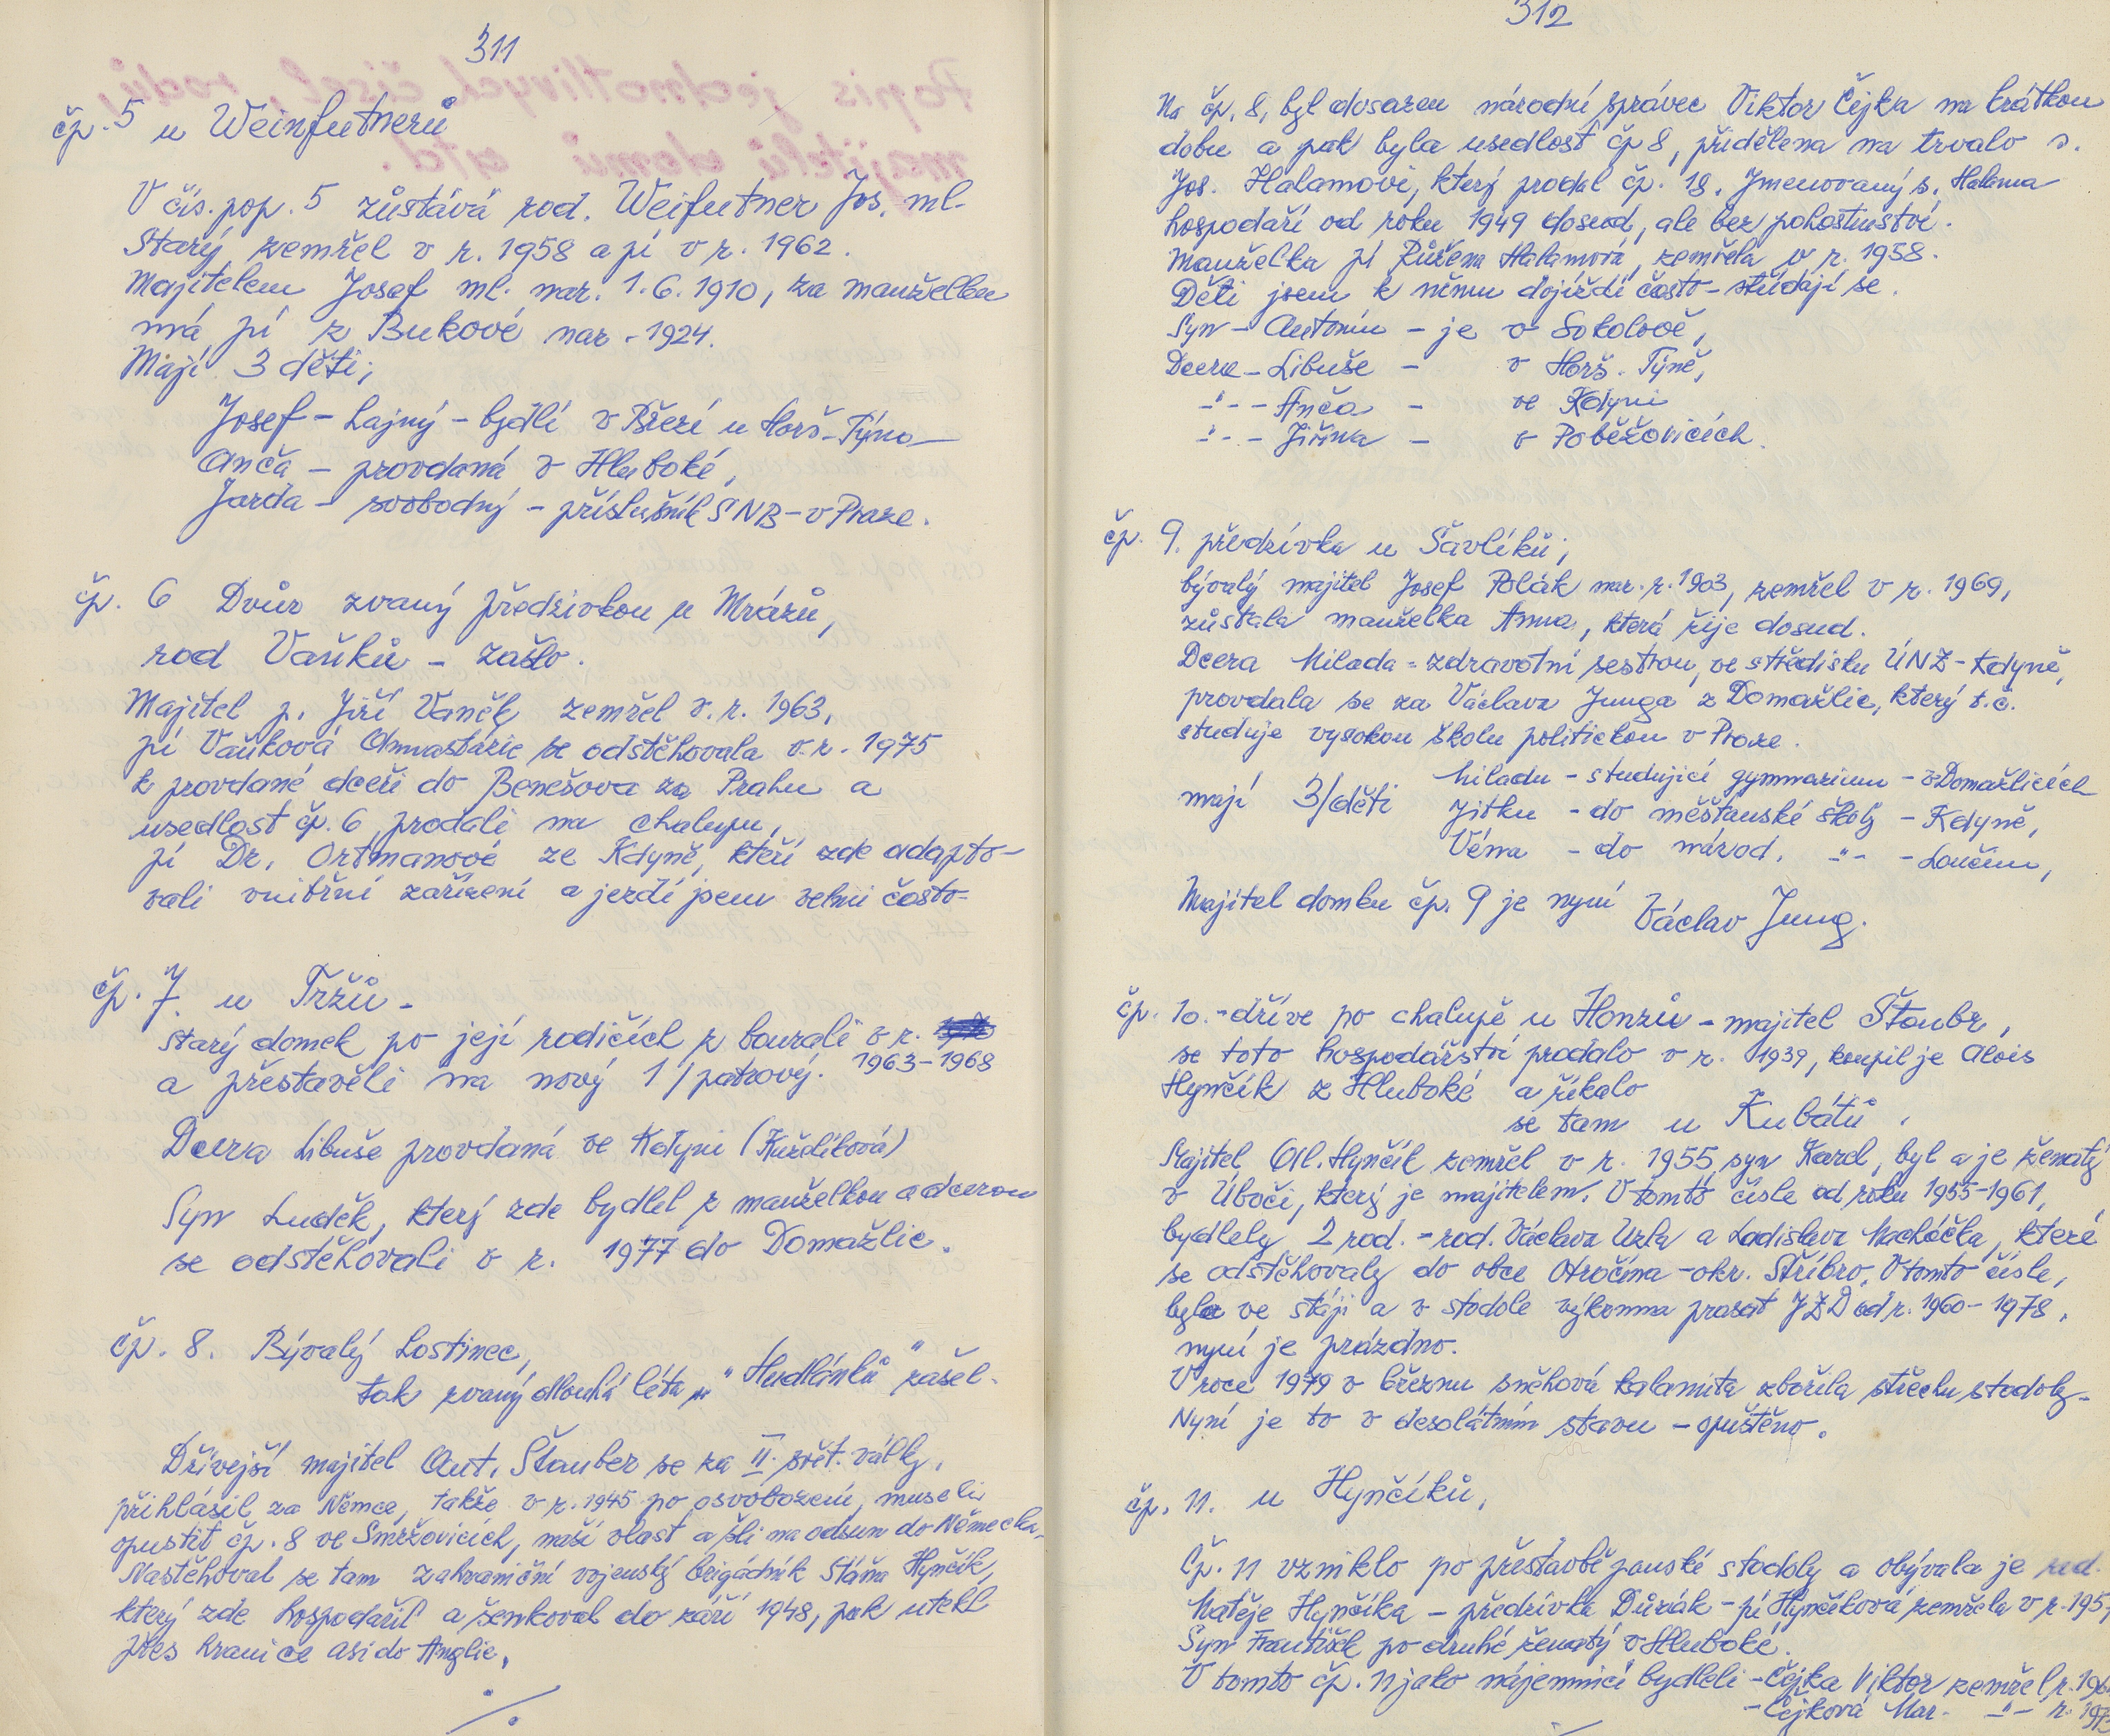 311
čp. 5 u Weinfutnerů
V čís. pop. 5 zůstává rod. Weifutner Jos. ml.
Starý zemřel v r. 1958 a pí v r. 1962.
Majitelem Josef ml. nar. 1.6.1910, za manželku
má pí z Bukové nar. 1924.
Mají 3 děti;
Josef – hajný – bydlí v Březí u Horš. Týna
Anča – provdaná v Hluboké,
Jarda – svobodný – příslušník SNB – v Praze.
čp. 6 Dvůr zvaný předzivkou u Mrázů,
rod Vaňků – zašlo.
Majitel p. Jiří Vaněk zemřel v. r. 1963,
pí Vaňková se odstěhovala v. r. 1975
k provdané dceři do Benešova za Prahu a
usedlost čp. 6 prodali na chalupu,
pí Dr. Ortmanové ze Kdyně, kteří zde adapto-
vali vnitřní zařízení a jezdí jsem velmi často-
čp. 7. u Tržů -
starý domek po její rodičích z bourali v r.
1963-1968
a přestavěli na nový 1/patrový.
Dcera Libuše provdaná ve Kdyni (Kuždíková)
Syn Luděk, který zde bydlel z manželkou a dcerou
se odstěhovali v r. 1977 do Domažlic.
čp. 8. Bývalý hostinec,
tak zvaný dlouhá léta „u Hudlánků" zašel.
Dřívejší majitel Ant. Štauber se za II. svět. války,
přihlásil za Němce, takže v r. 1945 po osvobození, museli
opustit čp. 8 ve Smržovicích, naší vlast a šli na odsun do Německa.
Nastěhoval se tam zahraniční vojenský brigádník Stáňa Hynčík,
který zde hospodařil a šenkoval do září 1948, pak utekl
přes hranice asi do Anglie.
./.
312
Na čp. 8, byl dosazen národní správec Viktor Čejka na krátkou
dobu a pak byla usedlost čp 8, přidělena na trvalo s.
Jos. Halamovi, který prodal čp. 18. Jmenovaný s. Halama
hospodaří od roku 1949 dosud, ale bez pohostinství.
Manželka pí Růžena Halamová, zemřela v r. 1958.
Děti jsem k němu dojíždí často – střídají se.
Syn – Antonín – je v Sokolově,
Dcera – Libuše – v Horš. Týně,
–"– – Anča – ve Kdyni
–"– – Jiřina – v Poběžovicích.
čp. 9. předzívka u Šavlíků;
bývalý majitel Josef Polák nar. r. 1903, zemřel v r. 1969,
zůstala manželka Anna, která žije dosud.
Dcera Milada = zdravotní sestrou, ve středisku ÚNZ – Kdyně,
provdala se za Václava Junga z Domažlic, který t.č.
studuje vysokou školu politickou v Praze.
mají 3/děti Miladu – studující gymnasium – v Domažlicích
Jitku – do měšťanské školy – Kdyně,
Véna – do národ. –"– – Loučim,
Majitel domku čp. 9 je nyní Václav Jung.
čp. 10. – dříve po chalupě u Honzů – majitel Štaubr,
se toto hospodářství prodalo v r. 1939, koupil je Alois
Hynčík z Hluboké a říkalo
se tam u Kubátů.
Majitel Al. Hynčík zemřel v r. 1955, syn Karel, byl a je ženatý
v Úboči, který je majitelem. V tomto čísle od roku 1955-1961,
bydlely 2 rod. – rod. Václava Urla a Ladislava Macháčka, které
se odstěhovaly do obce Otročína – okr. Stříbro. V tomto čísle,
byla ve stáji a v stodole výkrmna prasat JZD od r. 1960-1978,
nyní je prázdno.
V roce 1979 v březnu sněhová kalamita zbořila střechu stodoly.
Nyní je to v desolátním stavu – opuštěno.
čp. 11. u Hynčíků,
Čp. 11 vzniklo po přestavbě panské stodoly a obývala je rod.
Matěje Hynčíka – předzívka Důzák – pí Hynčíková zemřela v r. 195
Syn František po druhé ženatý v Hluboké.
V tomto čp. 11 jako nájemníci bydleli – Čejka Viktor zemřel r. 196
– Čejková Mar. –"– r. 197